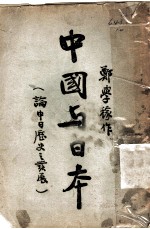 鄭學稼作
中國与日本
（論中日歷史之發展）